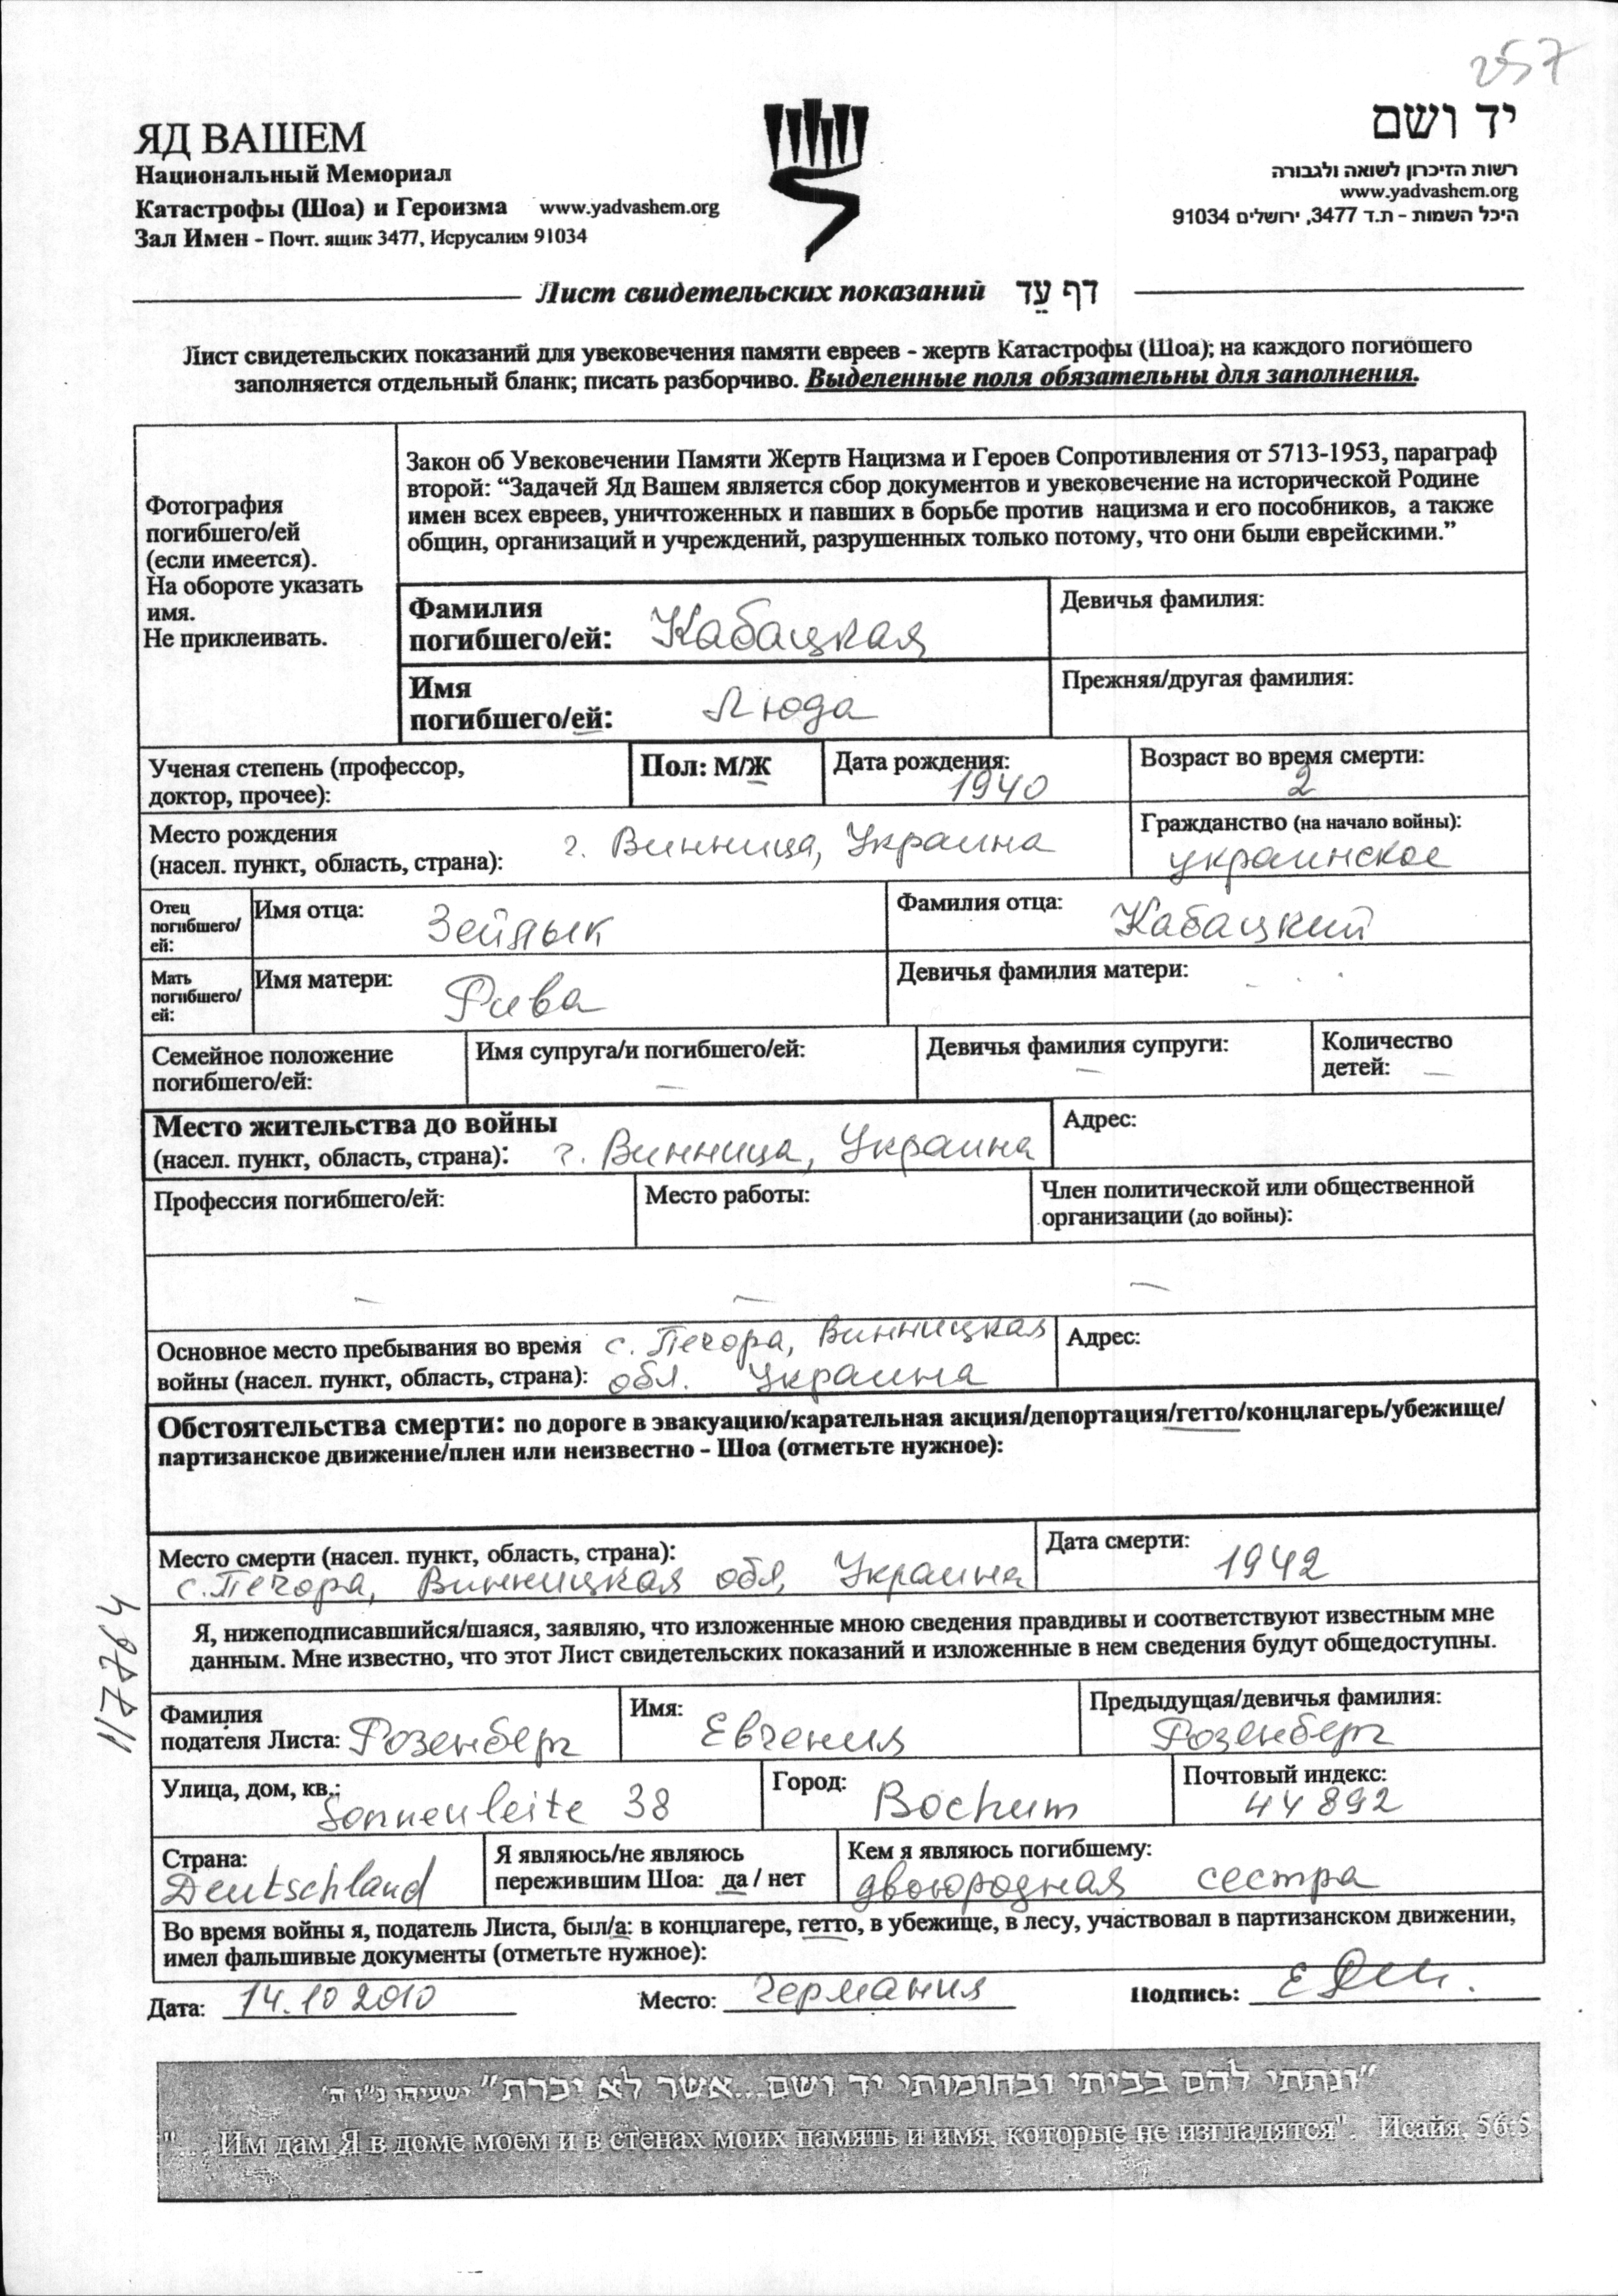 257
ЯД ВАШЕМ
Национальный Мемориал
Катастрофы (Шоа) и Героизма www.yadvashem.org
Зал Имен - Почт. ящик 3477, Иерусалим 91034
יד ושם
רשות הזיכרון לשואה ולגבורה
www.yadvashem.org
היכל השמות - ת.ד 3477, ירושלים 91034
Лист свидетельских показаний דף עֵד
Лист свидетельских показаний для увековечения памяти евреев - жертв Катастрофы (Шоа); на каждого погибшего
заполняется отдельный бланк; писать разборчиво. Выделенные поля обязательны для заполнения.
Фотография
погибшего/ей
(если имеется).
На обороте указать
имя.
Не приклеивать.
Закон об Увековечении Памяти Жертв Нацизма и Героев Сопротивления от 5713-1953, параграф
второй: “Задачей Яд Вашем является сбор документов и увековечение на исторической Родине
имен всех евреев, уничтоженных и павших в борьбе против нацизма и его пособников, а также
общин, организаций и учреждений, разрушенных только потому, что они были еврейскими.”
Фамилия
погибшего/ей: Кабацкая
Девичья фамилия:
Имя
погибшего/ей: Люда
Прежняя/другая фамилия:
Ученая степень (профессор,
доктор, прочее):
Пол: М/Ж
Дата рождения:
1940
Возраст во время смерти:
2
Место рождения
(насел. пункт, область, страна): г. Винница, Украина
Гражданство (на начало войны):
украинское
Отец
погибшего/
ей:
Имя отца: Зейлык
Фамилия отца: Кабацкий
Мать
погибшего/
ей:
Имя матери: Рива
Девичья фамилия матери: -
Семейное положение
погибшего/ей:
Имя супруга/и погибшего/ей:
—
Девичья фамилия супруги:
—
Количество
детей: —
Место жительства до войны
(насел. пункт, область, страна): г. Винница, Украина
Адрес:
Профессия погибшего/ей:
Место работы:
Член политической или общественной
организации (до войны):
— — —
Основное место пребывания во время с. Печора, Винницкая
войны (насел. пункт, область, страна): обл. Украина
Адрес:
Обстоятельства смерти: по дороге в эвакуацию/карательная акция/депортация/гетто/концлагерь/убежище/
партизанское движение/плен или неизвестно - Шоа (отметьте нужное):
Место смерти (насел. пункт, область, страна):
с. Печора, Винницкая обл, Украина
Дата смерти:
1942
117764
Я, нижеподписавшийся/шаяся, заявляю, что изложенные мною сведения правдивы и соответствуют известным мне
данным. Мне известно, что этот Лист свидетельских показаний и изложенные в нем сведения будут общедоступны.
Фамилия
подателя Листа: Розенберг
Имя:
Евгения
Предыдущая/девичья фамилия:
Розенберг
Улица, дом, кв.:
Sonnenleite 38
Город: Bochum
Почтовый индекс:
44892
Страна:
Deutschland
Я являюсь/не являюсь
пережившим Шоа: да / нет
Кем я являюсь погибшему:
двоюродная сестра
Во время войны я, податель Листа, был/а: в концлагере, гетто, в убежище, в лесу, участвовал в партизанском движении,
имел фальшивые документы (отметьте нужное):
Дата: 14.10 2010 Место: Германия Подпись:
"ונתתי להם בביתי ובחומותי יד ושם...אשר לא יכרת" ישעיהו נ"ו ה'
"... Им дам Я в доме моем и в стенах моих память и имя, которые не изгладятся". Исайя, 56:5